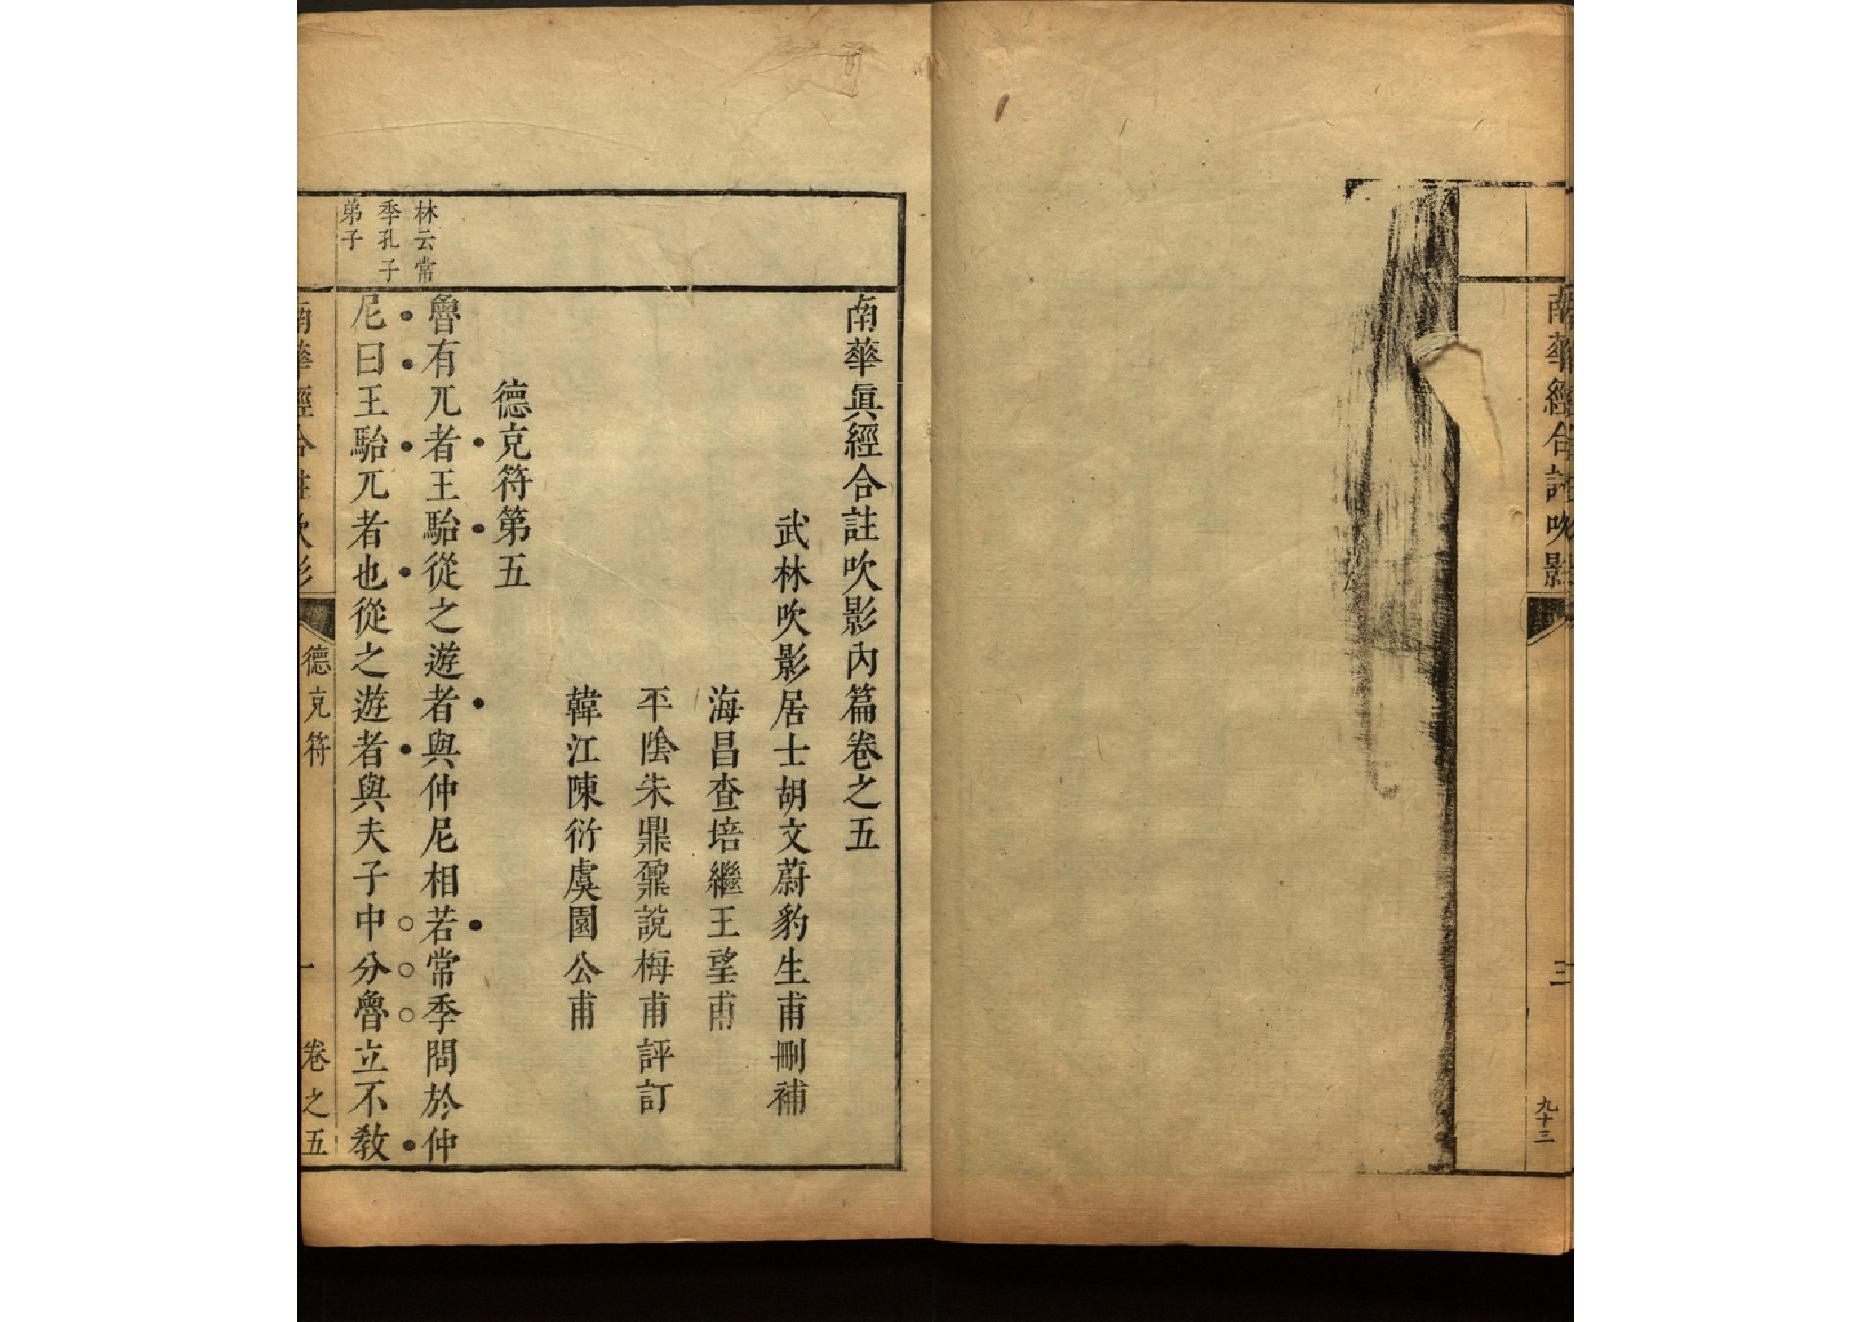 南華經合註吹影
三
九十三
南華眞經合註吹影內篇卷之五
武林吹影居士胡文蔚豹生甫刪補
海昌查培繼王望甫
平陰朱鼎鼐說梅甫評訂
韓江陳衍虞園公甫
德充符第五
林云常
季孔子
弟子
魯有兀者王駘從之遊者與仲尼相若常季問於仲
尼曰王駘兀者也從之遊者與夫子中分魯立不敎
南華經合註吹影
德充符
一
卷之五